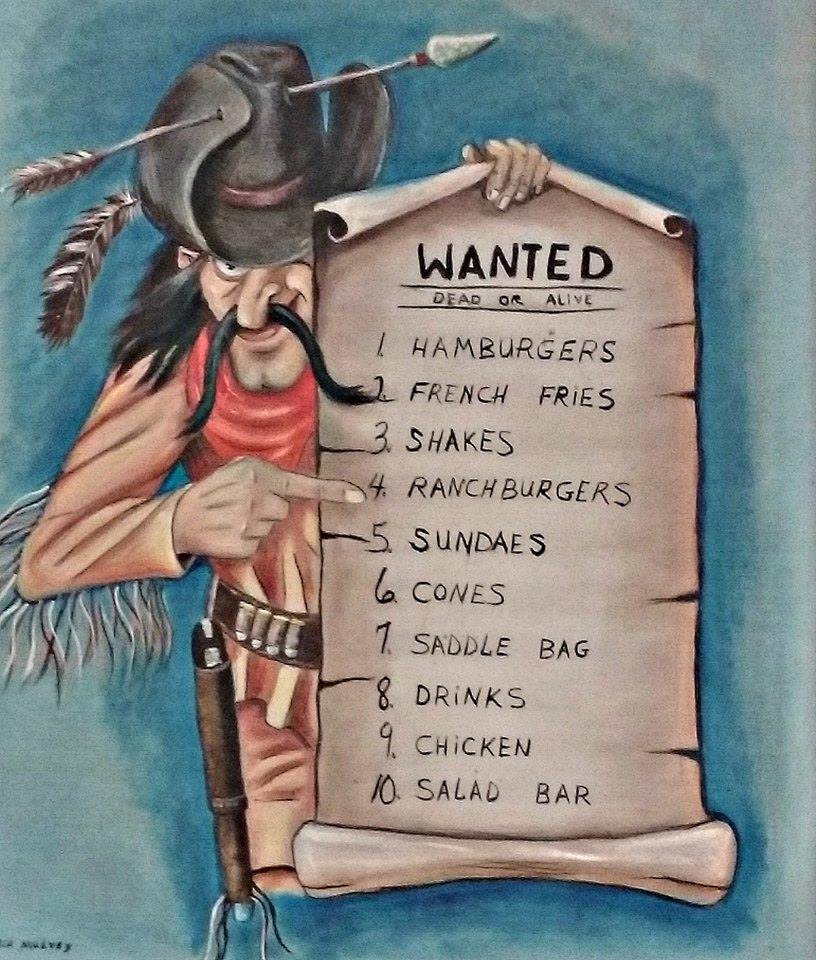 WANTED
DEAD OR ALIVE
1. HAMBURGERS
2. FRENCH FRIES
3. SHAKES
4. RANCHBURGERS
5. SUNDAES
6. CONES
7. SADDLE BAG
8. DRINKS
9. CHICKEN
10. SALAD BAR
MULVEY